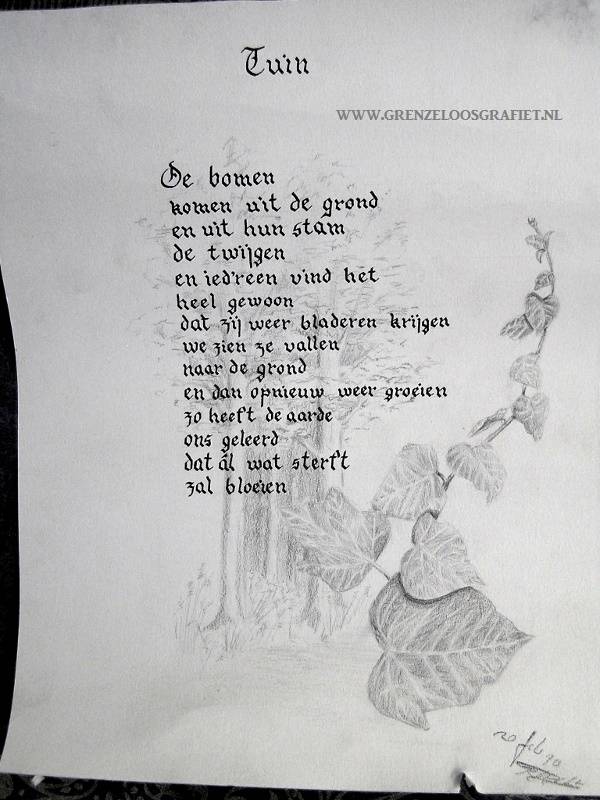 Tuin
WWW.GRENZELOOSGRAFIET.NL
De bomen
komen uit de grond
en uit hun stam
de twijgen
en ied'reen vind het
heel gewoon
dat zij weer bladeren krijgen
we zien ze vallen
naar de grond
en dan opnieuw weer groeien
zo heeft de aarde
ons geleerd
dat ál wat sterft
zal bloeien
20 feb 90